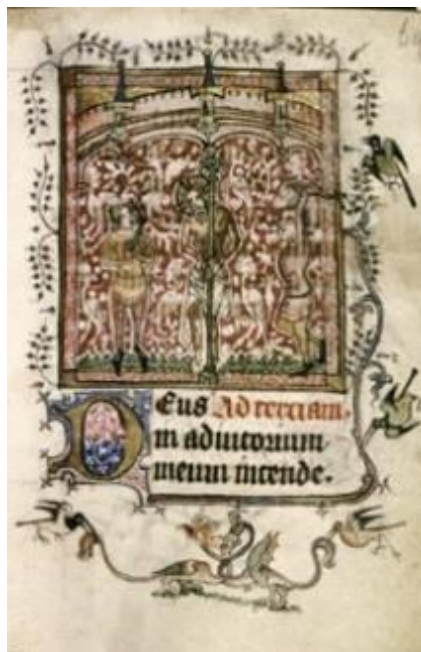 DEus Ad terciam.
in adiutorium
meum intende.